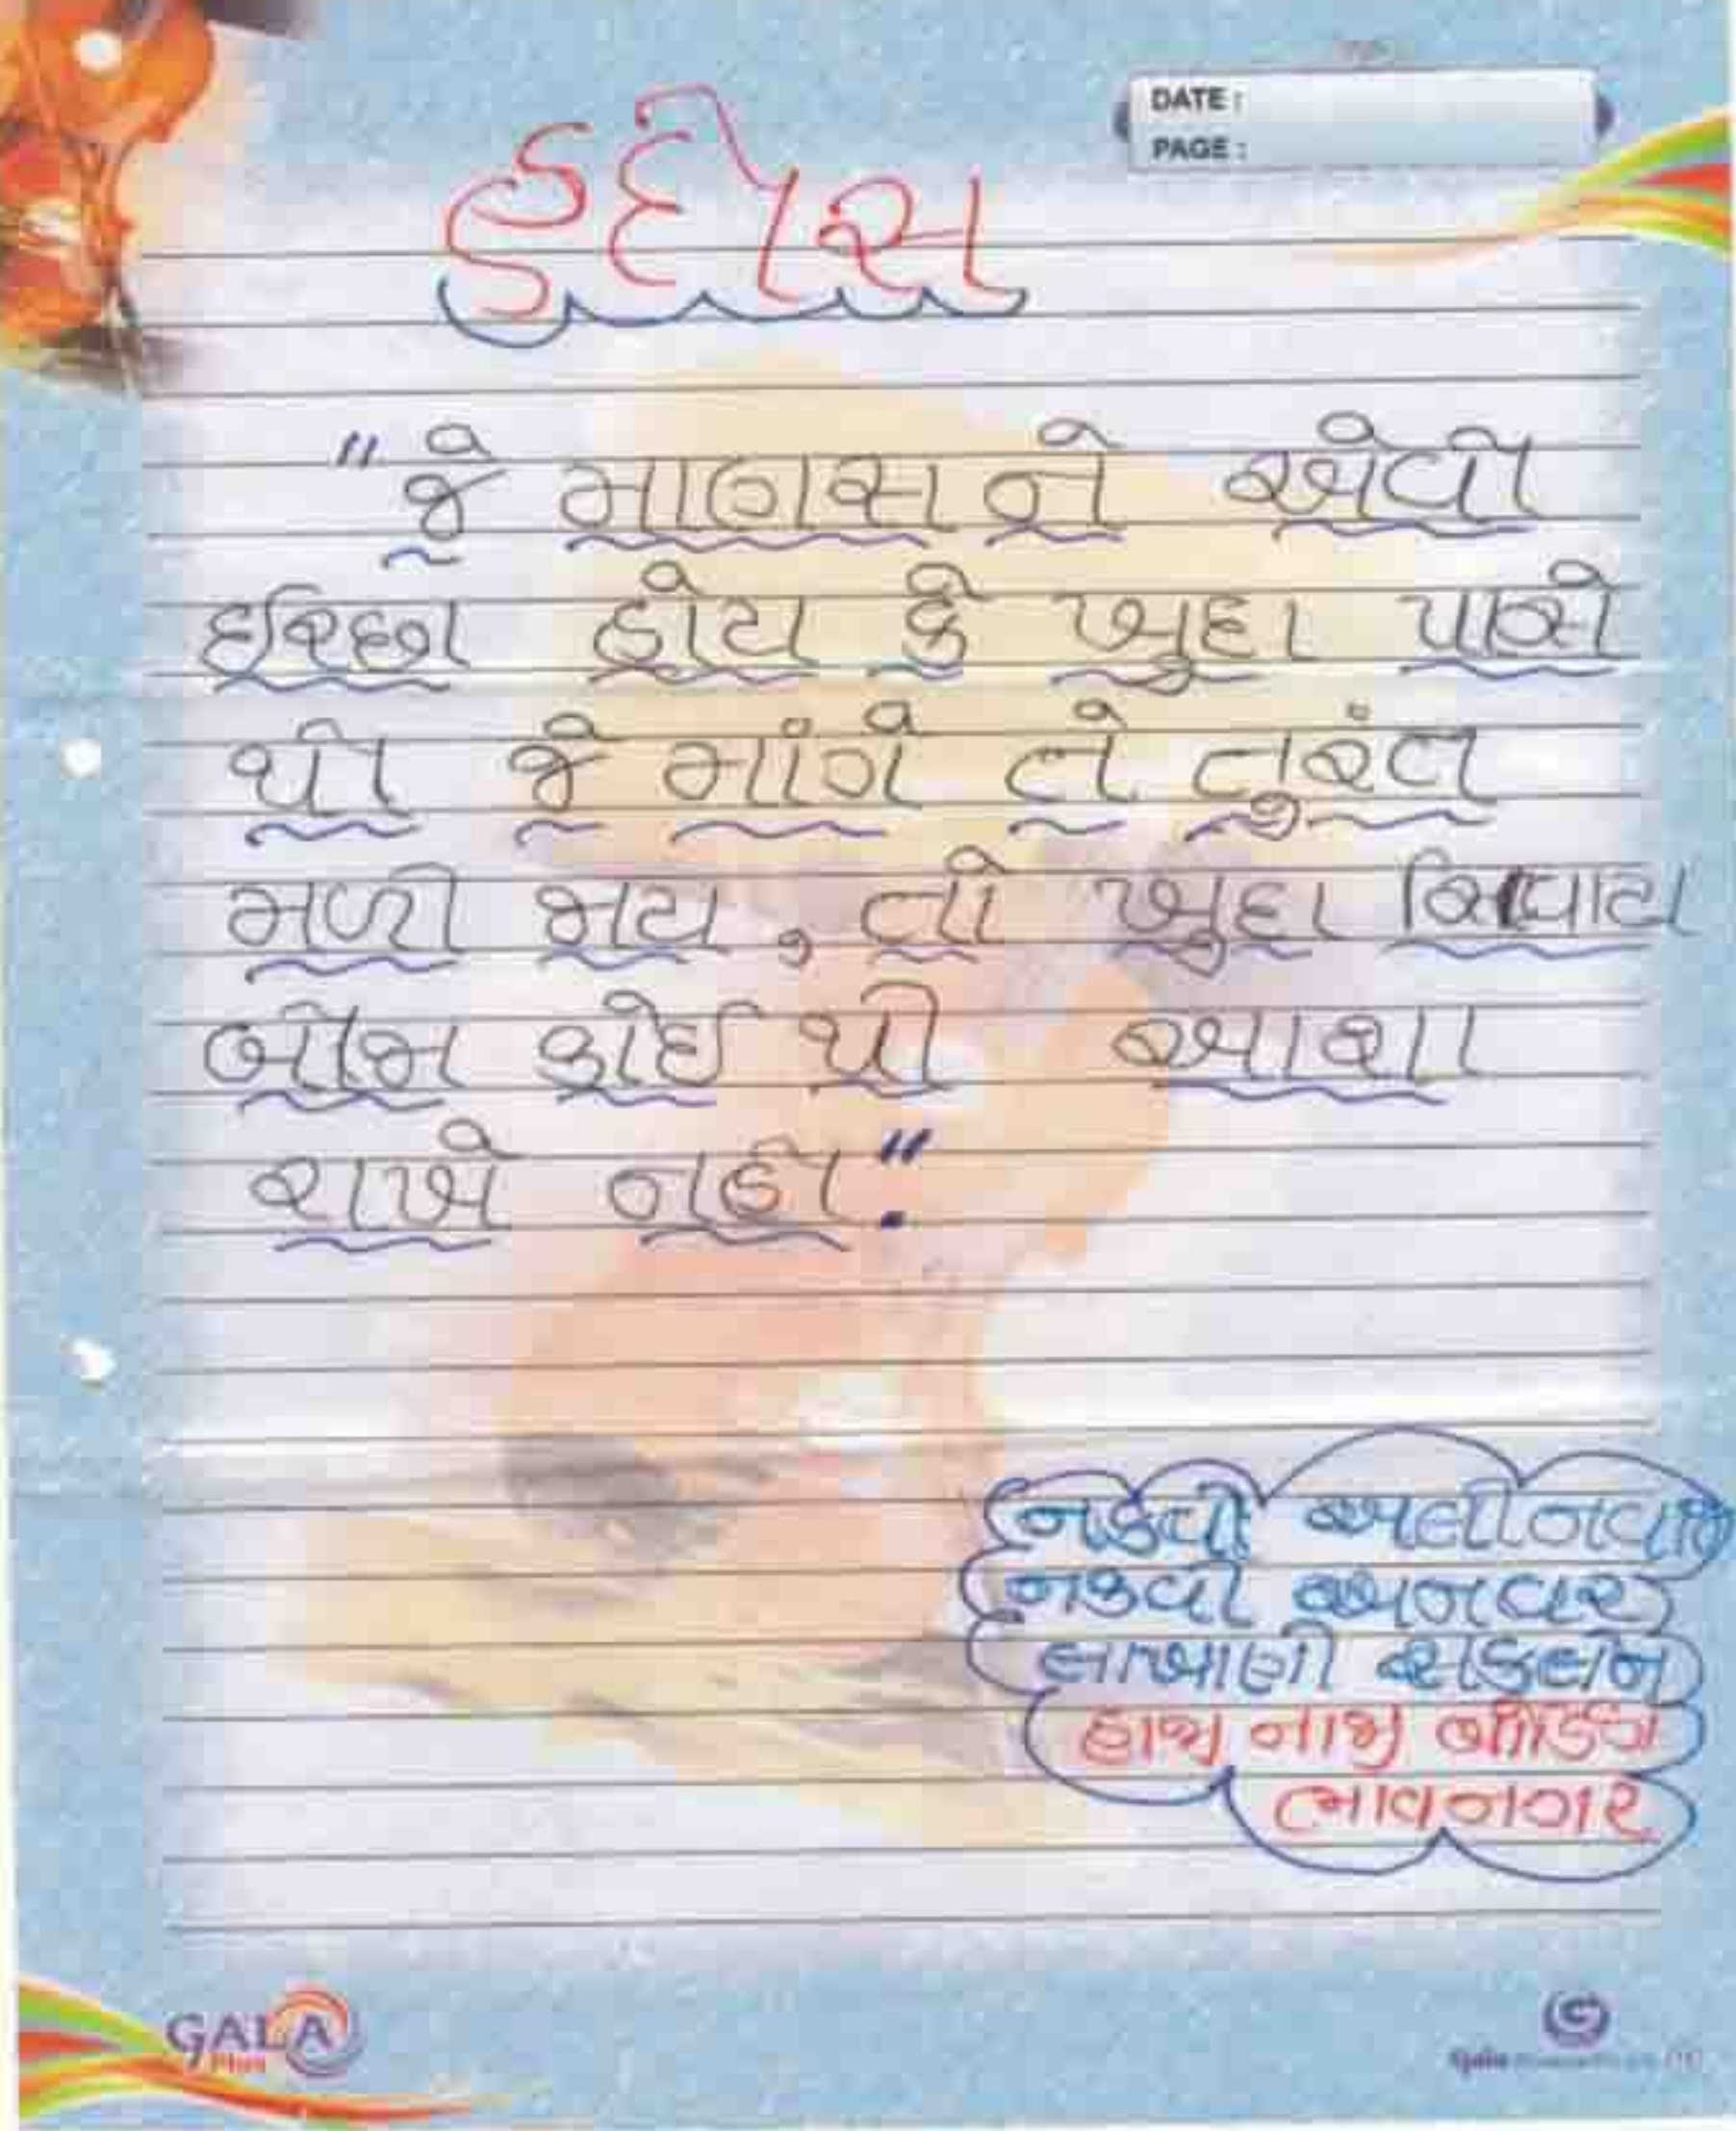 DATE :
PAGE :
હદીસ
"જે માણસ ને એવી
ઈચ્છા હોય કે ખુદા પાસે
થી જે માંગે તે તુરંત
મળી જાય, તો ખુદા સિવાય
બીજા કોઈ થી આશા
રાખે નહી."
નકવી અલીનવાઝ
નકવી અનવાર
લાખાણી સકલૈન
હાજી નાજી બોર્ડિંગ
ભાવનગર
GALA
Plus
Gala